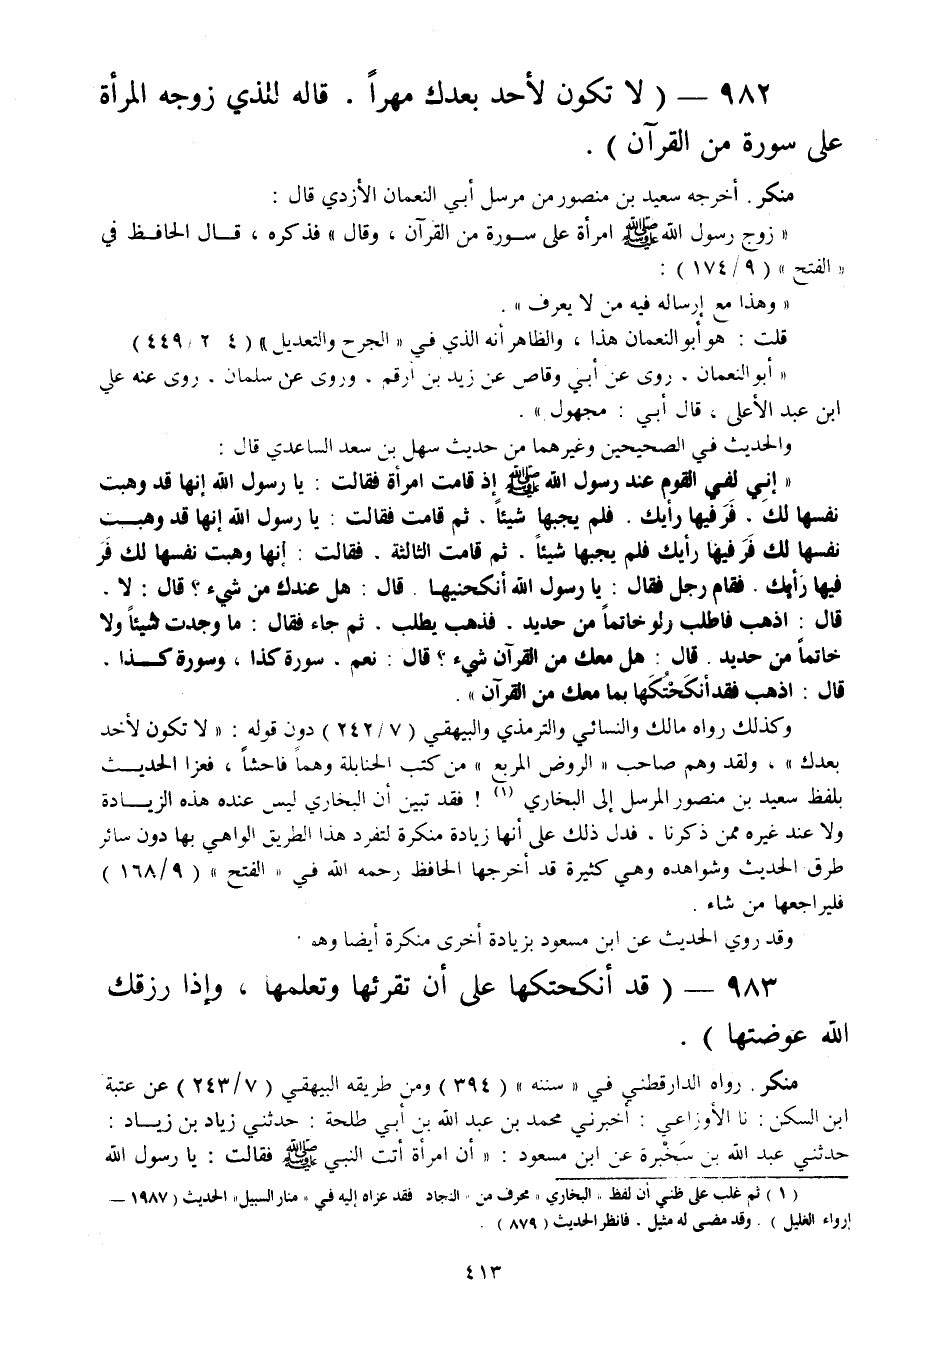 ٩٨٢ — ( لا تكون لأحد بعدك مهراً . قاله للذي زوجه المرأة
على سورة من القرآن ) .
منكر . أخرجه سعيد بن منصور من مرسل أبي النعمان الأزدي قال :
« زوج رسول الله ﷺ امرأة على سورة من القرآن ، وقال » فذكره ، قال الحافظ في
« الفتح » ( ٩/١٧٤ ) :
« وهذا مع إرساله فيه من لا يعرف » .
قلت : هو أبو النعمان هذا ، والظاهر أنه الذي في « الجرح والتعديل » ( ٤ ٢ /٤٤٩ )
« أبو النعمان . روى عن أبي وقاص عن زيد بن أرقم . وروى عن سلمان . روى عنه علي
ابن عبد الأعلى ، قال أبي : مجهول » .
والحديث في الصحيحين وغيرهما من حديث سهل بن سعد الساعدي قال :
« إني لفي القوم عند رسول الله ﷺ إذ قامت امرأة فقالت : يا رسول الله إنها قد وهبت
نفسها لك . فَرَ فيها رأيك . فلم يجبها شيئاً . ثم قامت فقالت : يا رسول الله إنها قد وهبت
نفسها لك فَرَ فيها رأيك فلم يجبها شيئاً . ثم قامت الثالثة . فقالت : إنها وهبت نفسها لك فَرَ
فيها رأيك . فقام رجل فقال : يا رسول الله أنكحنيها . قال : هل عندك من شيء ؟ قال : لا .
قال : اذهب فاطلب ولو خاتماً من حديد . فذهب يطلب . ثم جاء فقال : ما وجدت شيئاً ولا
خاتماً من حديد . قال : هل معك من القرآن شيء ؟ قال : نعم . سورة كذا ، وسورة كذا .
قال : اذهب فقد أنكَحْتُكَها بما معك من القرآن » .
وكذلك رواه مالك والنسائي والترمذي والبيهقي ( ٧/٢٤٢ ) دون قوله : « لا تكون لأحد
بعدك » ، ولقد وهم صاحب « الروض المربع » من كتب الحنابلة وهماً فاحشاً ، فعزا الحديث
بلفظ سعيد بن منصور المرسل إلى البخاري (١) ! فقد تبين أن البخاري ليس عنده هذه الزيادة
ولا عند غيره ممن ذكرنا . فدل ذلك على أنها زيادة منكرة لتفرد هذا الطريق الواهي بها دون سائر
طرق الحديث وشواهده وهي كثيرة قد أخرجها الحافظ رحمه الله في « الفتح » ( ٩/١٦٨ )
فليراجعها من شاء .
وقد روي الحديث عن ابن مسعود بزيادة أخرى منكرة أيضا وهو
٩٨٣ — ( قد أنكحتكها على أن تقرئها وتعلمها ، وإذا رزقك
الله عوضتها ) .
منكر . رواه الدارقطني في « سننه » ( ٣٩٤ ) ومن طريقه البيهقي ( ٧/٢٤٣ ) عن عتبة
ابن السكن : نا الأوزاعي : أخبرني محمد بن عبد الله بن أبي طلحة : حدثني زياد بن زياد :
حدثني عبد الله بن سَخْبرة عن ابن مسعود : « أن امرأة أتت النبي ﷺ فقالت : يا رسول الله
( ١ ) ثم غلب على ظني أن لفظ « البخاري » محرف من « النجاد » فقد عزاه إليه في « منار السبيل » الحديث ( ١٩٨٧ —
إرواء الغليل ) . وقد مضى له مثيل . فانظر الحديث ( ٨٧٩ ) .
٤١٣